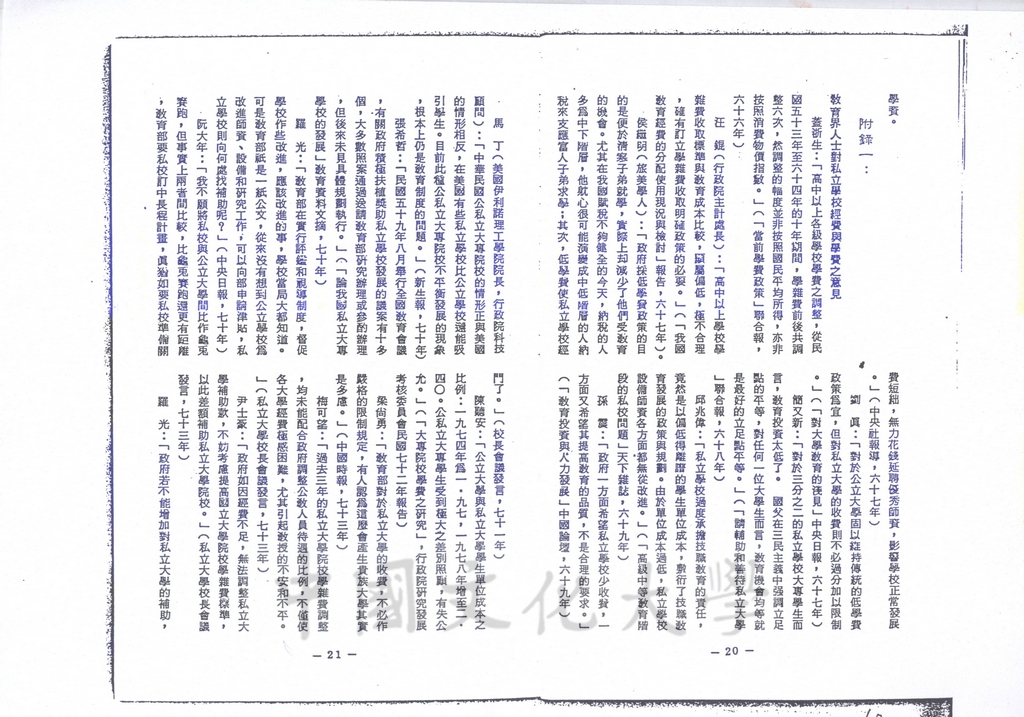 學費。
附錄一：
教育界人士對私立學校經費與學費之意見
蓋浙生：「高中以上各級學校學費之調整，從民
國五十三年至六十四年的十年期間，學雜費前後共調
整六次，然調整的幅度並非按照國民平均所得，亦非
按照消費物價指數。」（「當前學費政策」聯合報，
六十六年）
汪　錕（行政院主計處長）：「高中以上學校學
雜費收取標準與教育成本比較，顯屬偏低，極不合理
，確有訂立學雜費收取明確政策的必要。」（「我國
教育經費的分配使用現況與檢討」報告，六十七年）。
侯繼明（旅美學人）：「政府採低學費政策的目
的是便於清寒子弟就學，實際上却減少了他們受教育
的機會。尤其在我國賦稅不夠健全的今天，納稅的人
多為中下階層，他就心很可能演變成中低階層的人納
稅來支應富人子弟求學；其次，低學費使私立學校經
費短絀，無力花錢延聘優秀師資，影響學校正常發展
。」（中央社報導，六十七年）
劉　眞：「對於公立大學固以維持傳統的低學費
政策為宜，但對私立大學的收費則不必過分加以限制
。」（「對大學教育的淺見」中央日報，六十七年）
簡又新：「對於三分之二的私立學校大專學生而
言，教育投資太低了。　國父在三民主義中強調立足
點的平等，對任何一位大學生而言，教育機會均等就
是最好的立足點平等。」（「請輔助和善待私立大學
」聯合報，六十八年）
邱兆偉：「私立學校過度承擔技職教育的責任，
竟然是以偏低得離譜的學生單位成本，敷衍了技職教
育發展的政策與規劃。由於單位成本過低，私立學校
設備師資各方面都無從改進。」（「高級中等教育階
段的私校問題」天下雜誌，六十九年）
孫　震：「政府一方面希望私立學校少收費，一
方面又希望其提高教育的品質，不是合理的要求。」
（「教育投資與人力發展」中國論壇，六十九年）
— 20 —
馬　丁（美國伊利諾理工學院院長，行政院科技
顧問）：「中華民國公私立大專院校的情形正與美國
的情形相反，在美國有些私立學校比公立學校還能吸
引學生。目前此種公私立大專院校不平衡發展的現象
，根本上仍是教育制度的問題。」（新生報，七十年）
張希哲：「民國五十九年八月舉行全國教育會議
，有關政府積極扶植獎助私立學校發展的議案有十多
個，大多數照案通過送請教育部研究辦理或參酌辦理
，但後來未見具體規劃執行。」（「論我國私立大專
學校的發展」教育資料文摘，七十年）
羅　光：「教育部在實行評鑑和視導制度，督促
學校作些改進，應該改進的事，學校當局大都知道。
可是教育部祇是一紙公文，從來沒有想到公立學校為
改進師資、設備和研究工作，可以向部申請津貼，私
立學校則向何處找補助呢？」（中央日報，七十年）
阮大年：「我不願將私校與公立大學間比作龜兎
賽跑，但事實上兩者間比較，比龜兎賽跑還更有距離
，教育部要私校訂中長程計畫，眞猶如要私校準備關
門了。」（校長會議發言，七十一年）
陳聽安：「公立大學與私立大學學生單位成本之
比例：一九七四年為一．九七，一九七八年增至二．
四〇。公私立大專學生受到極大之差別照顧，有失公
允。」（「大專院校學費之研究」，行政院研究發展
考核委員會民國七十二年報告）
梁尚勇：「教育部對於私立大學的收費，不必作
嚴格的限制規定，有人認為這麼會產生貴族大學其實
是多慮。」（中國時報，七十三年）
梅可望：「過去三年的私立大學院校學雜費調整
，均未能配合政府調整公教人員待遇的比例，不僅使
各大學經費極感困難，尤其引起教授的不安和不平。
」（私立大學校長會議發言，七十三年）
尹士豪：「政府如因經費不足，無法調整私立大
學補助款，不妨考慮提高國立大學院校學雜費標準，
以此差額補助私立大學院校。」（私立大學校長會議
發言，七十三年）
羅　光：「政府若不能增加對私立大學的補助，
— 21 —
中國文化大學